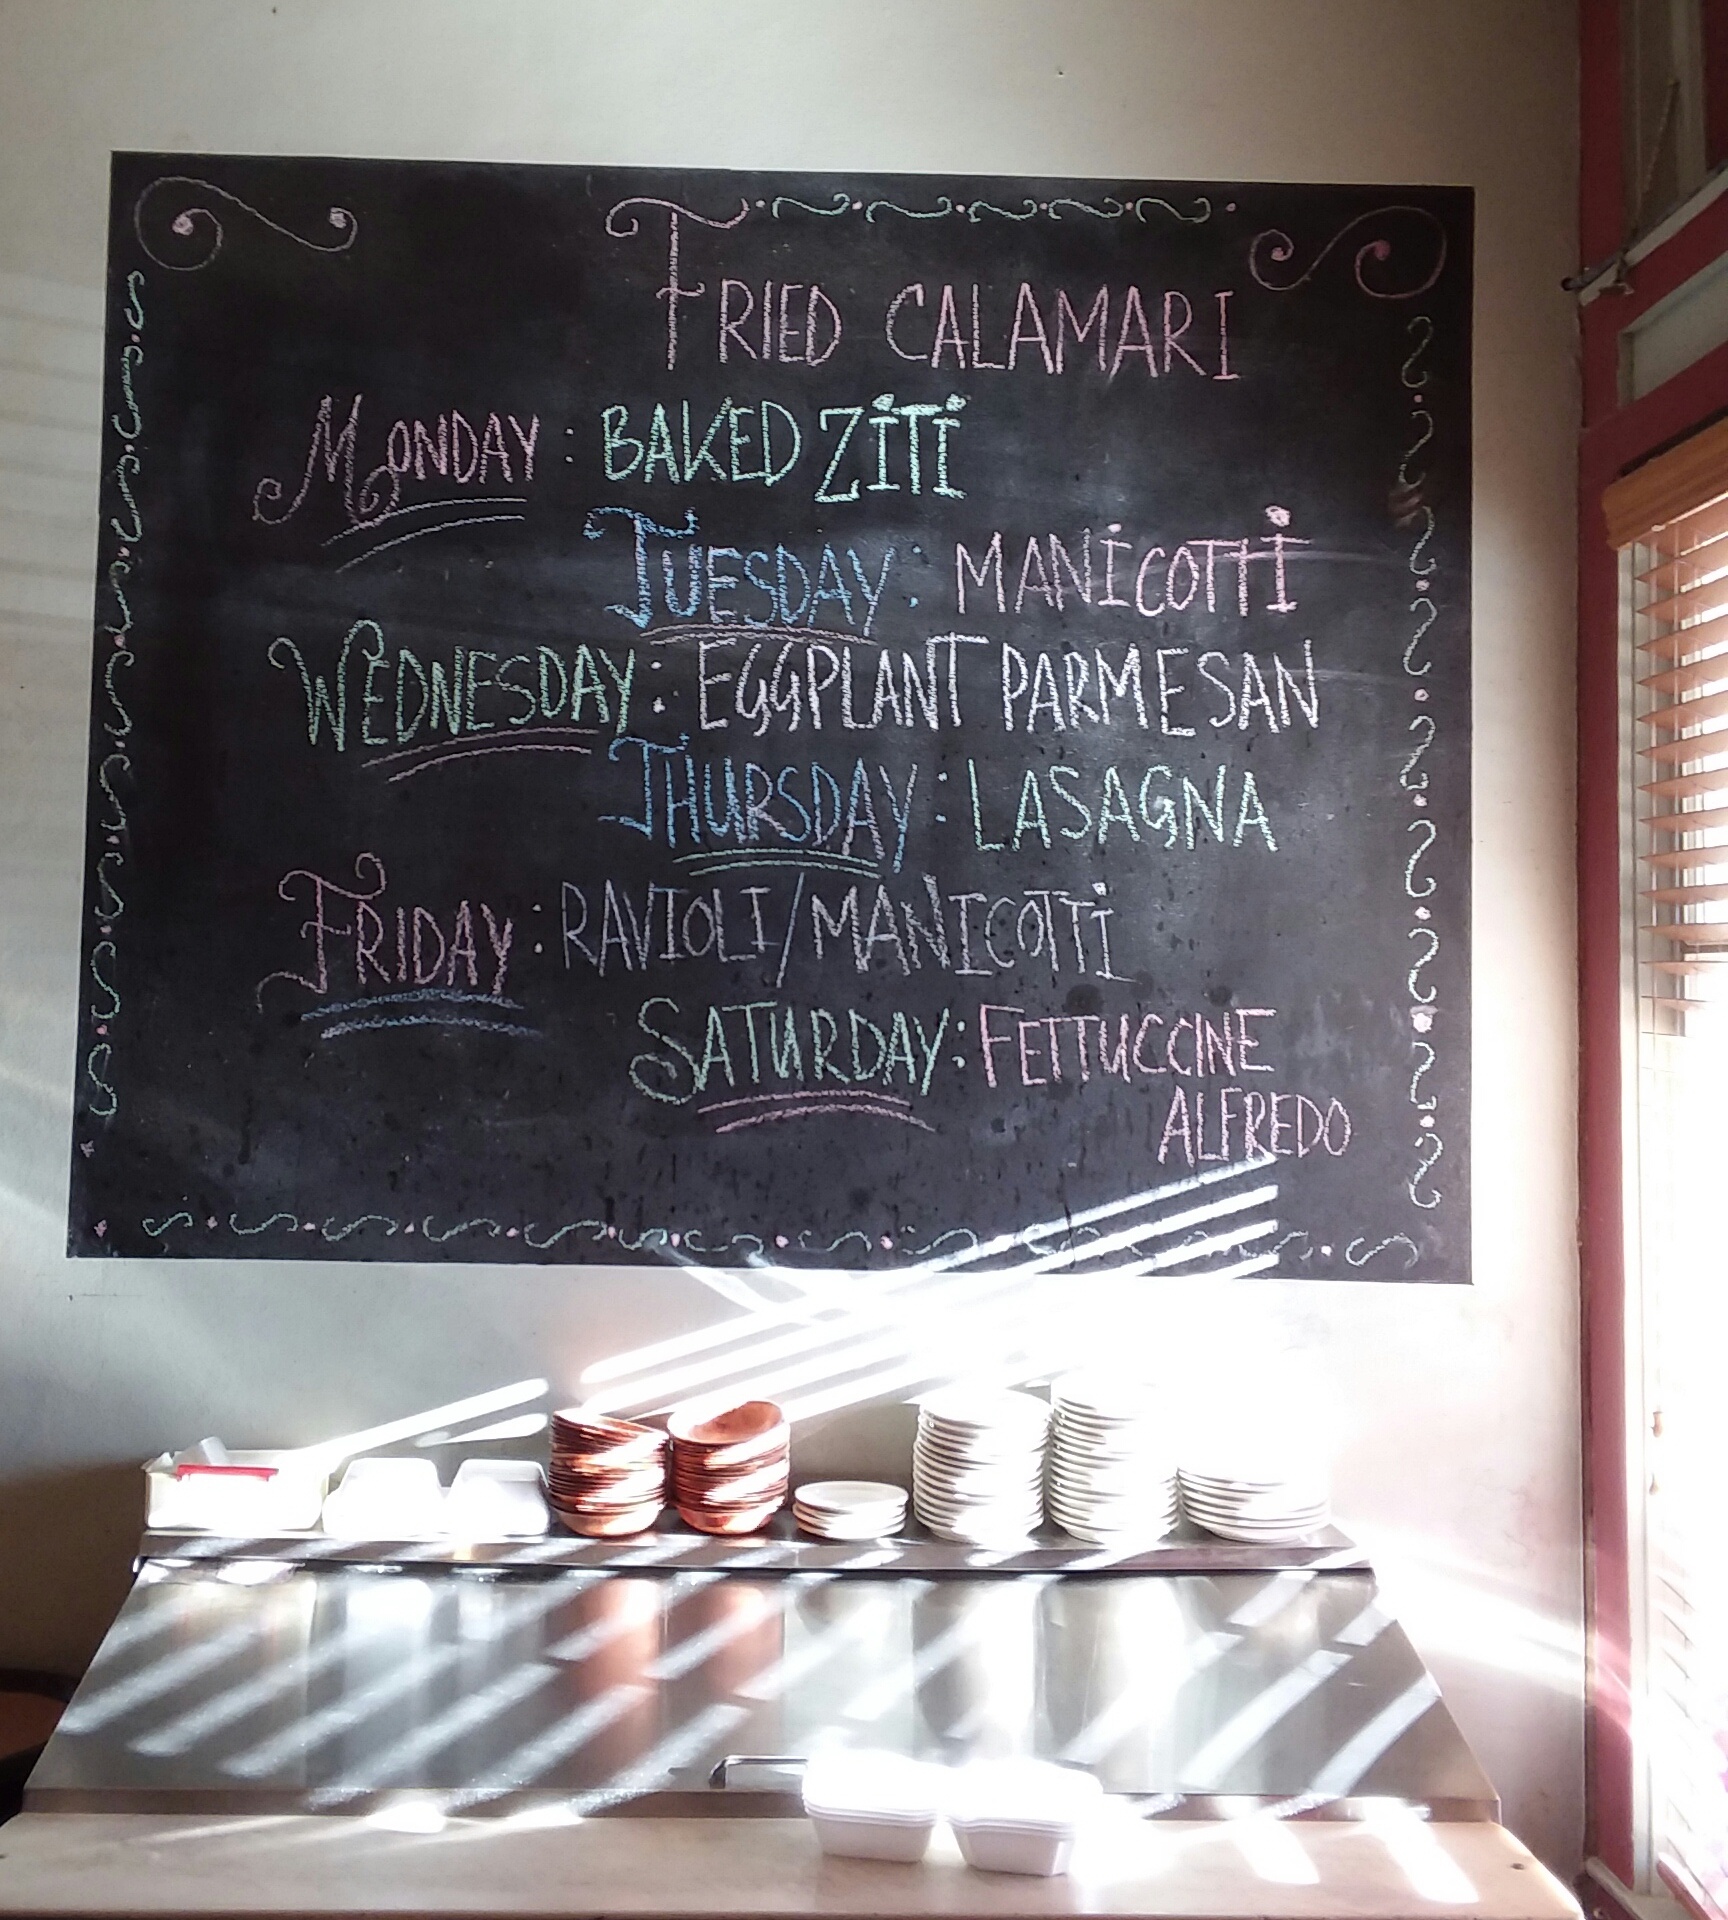 FRIED CALAMARI
MONDAY: BAKED ZITI
TUESDAY: MANICOTTI
WEDNESDAY: EGGPLANT PARMESAN
THURSDAY: LASAGNA
FRIDAY: RAVIOLI/MANICOTTI
SATURDAY: FETTUCCINE
ALFREDO